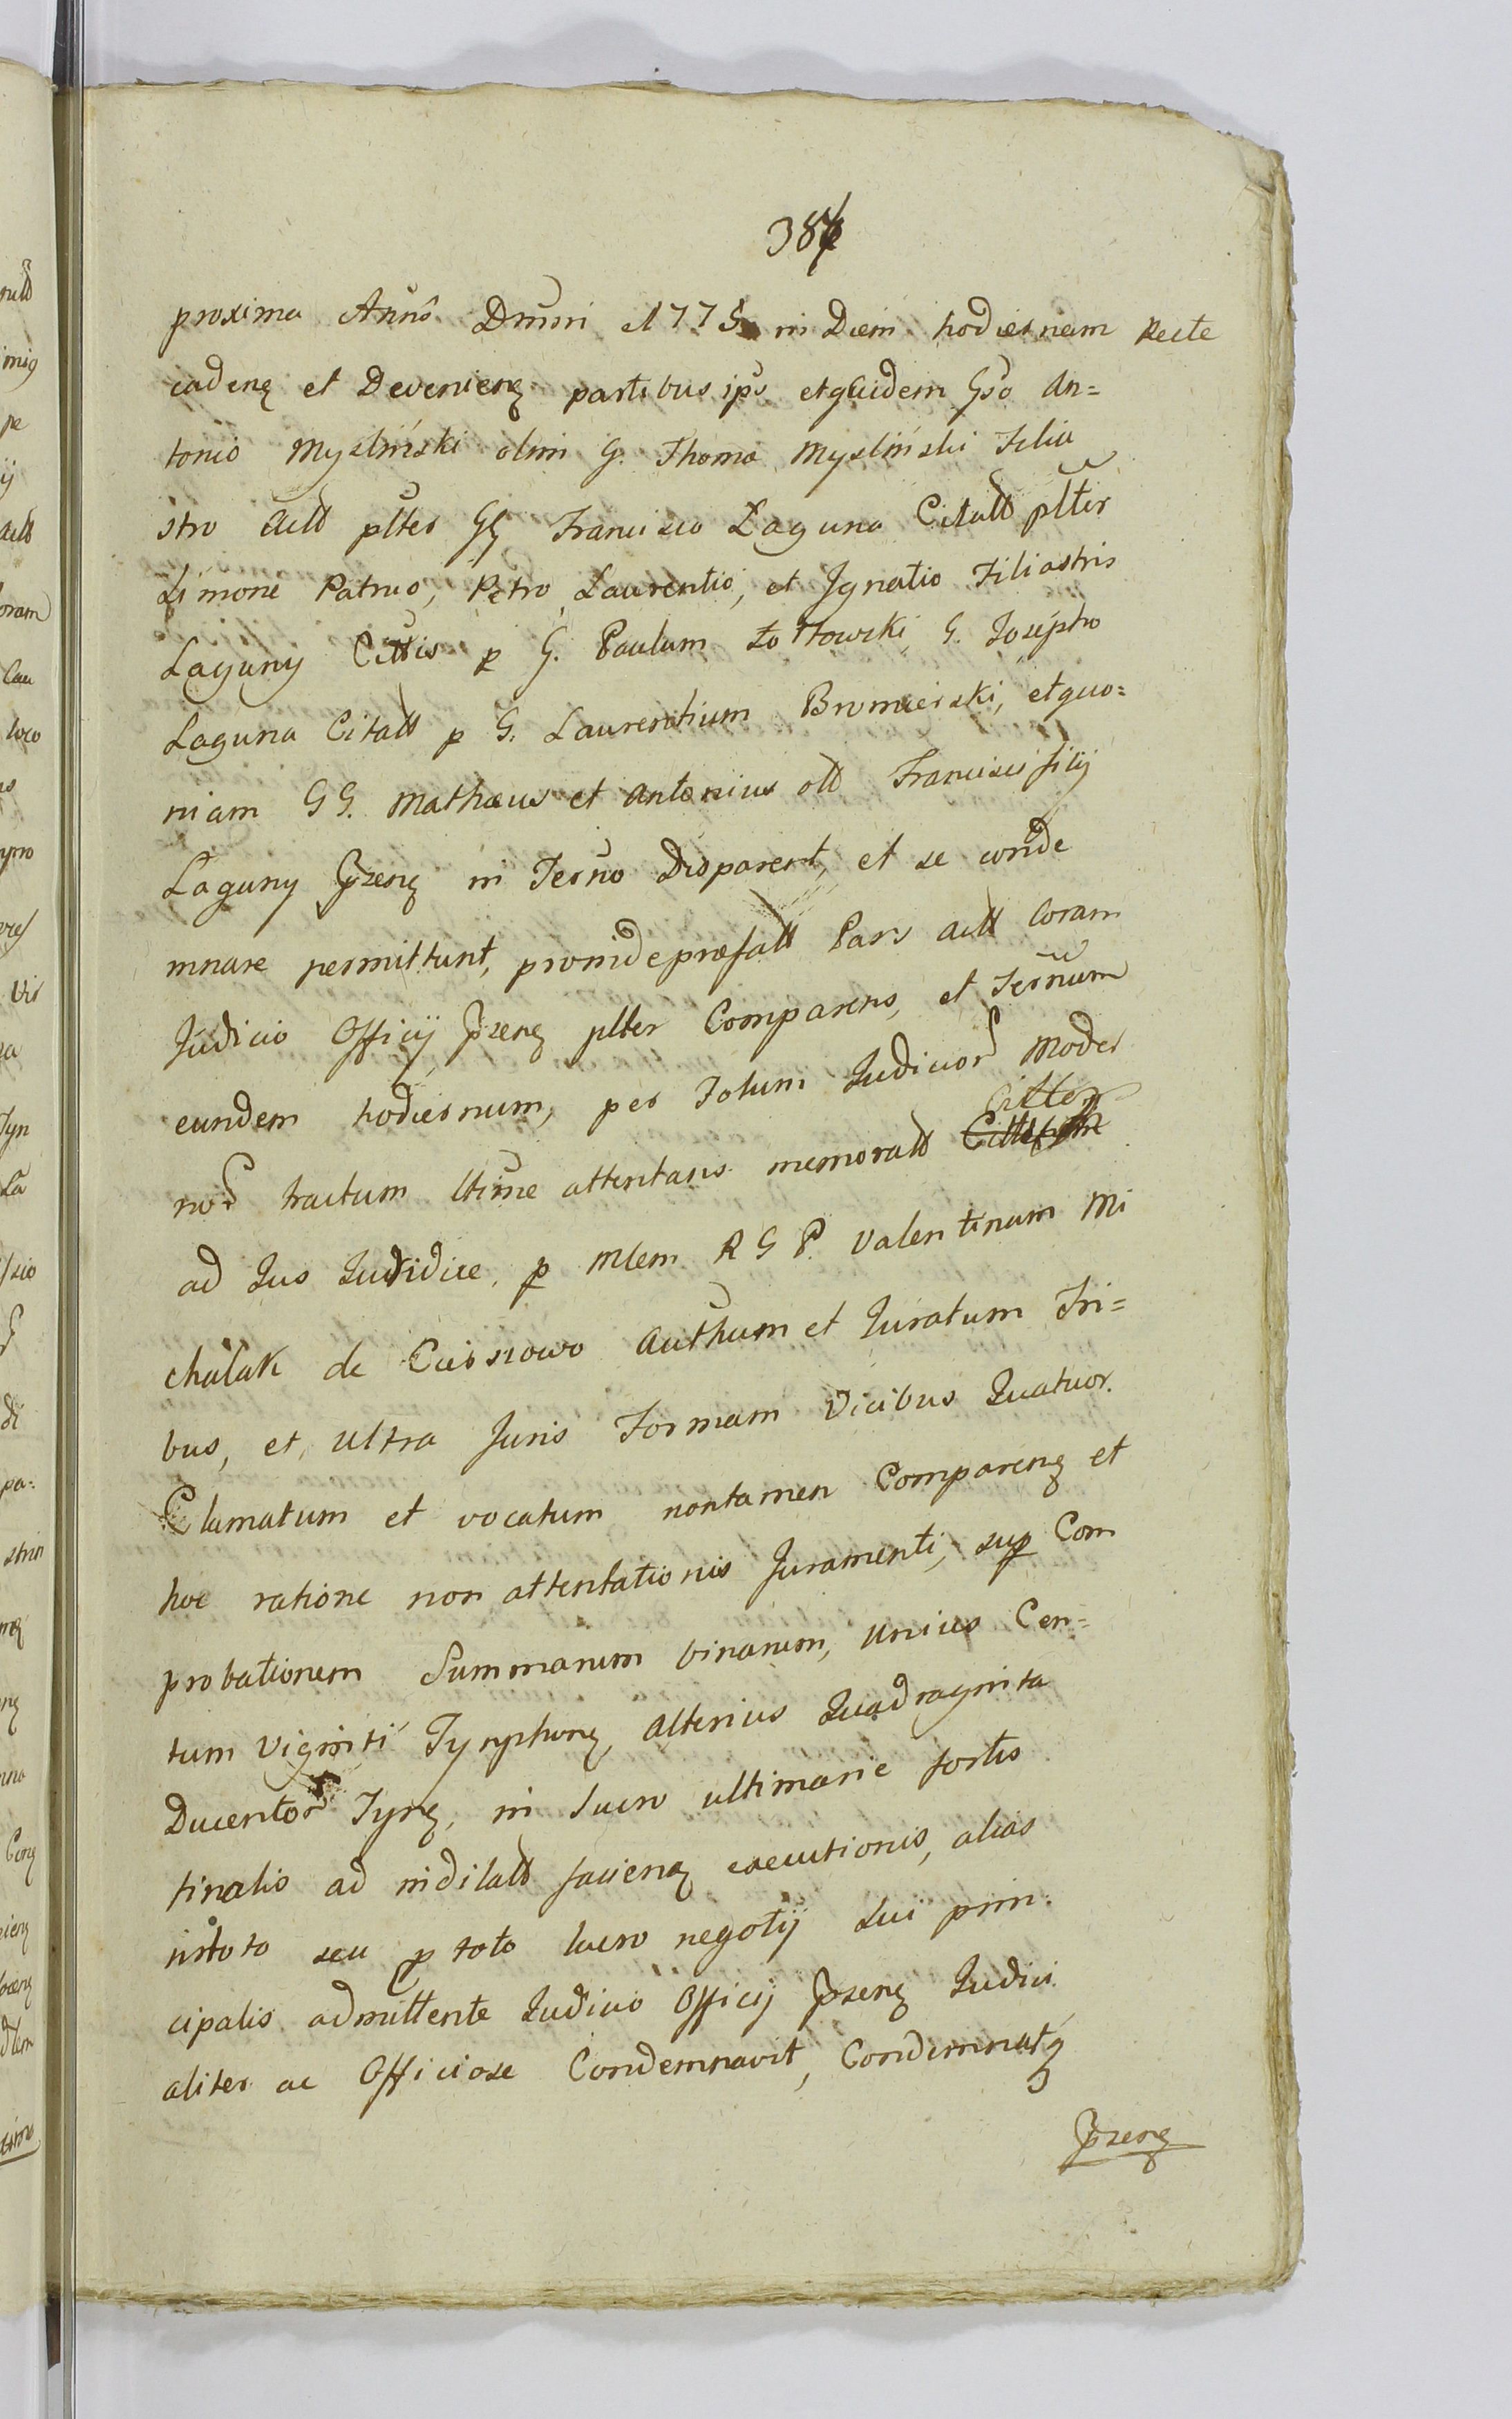 387
proxima Anno Dnni 1775 in Diem hodiernam Recte
cadenz et Devenienz partibus ips et quidem Gso An=
tonio Mysliński olim G. Thoma Mysliński Filia
stro Actt pltter GG Francisco Laguna Citatt pltter
Simone Patruo, Petro, Laurentio, et Ignatio Filiastris
Laguny Cittis p G. Paulum Zołtowski, G. Josepho
Laguna Citatt p G. Laurentium Bromierski, et quo=
niam GG. Mathæus et Antonius ott Francisci filij
Laguny Przenz in Terno Disparent, et se conde
mnare permittunt, proinde præfatt Pars Actt Coram
Judicio Officij Przenz pltter Comparens, et Ternum
eundem hodiernum, per Totum Judicior Moder
nor tractum ltime attentans memoratt Cittos
ad Jus Judidice, p Mlem R G P. Valentinum Mi
chalak de Ciesnowo Authum et Juratum Tri=
bus, et, ultra Juris Formam Vicibus Quatuor.
Clamatum et vocatum nontamen Comparenz et
hoc ratione non attentationis Juramenti, sup Com
probationem Summarum binarum, unius Cen=
tum viginti Tynphonz, alterius Quadraginta
Ducentor Tynz, in Lucro ultimarie fortis
finalis ad indilatt facienz executionis, alias
intoto seu p toto lucro negotij sui prin:
cipalis admittente Judicio Officij Przenz Judici
aliter ac Officiose Condemnavit, Condemnatq
Przenz